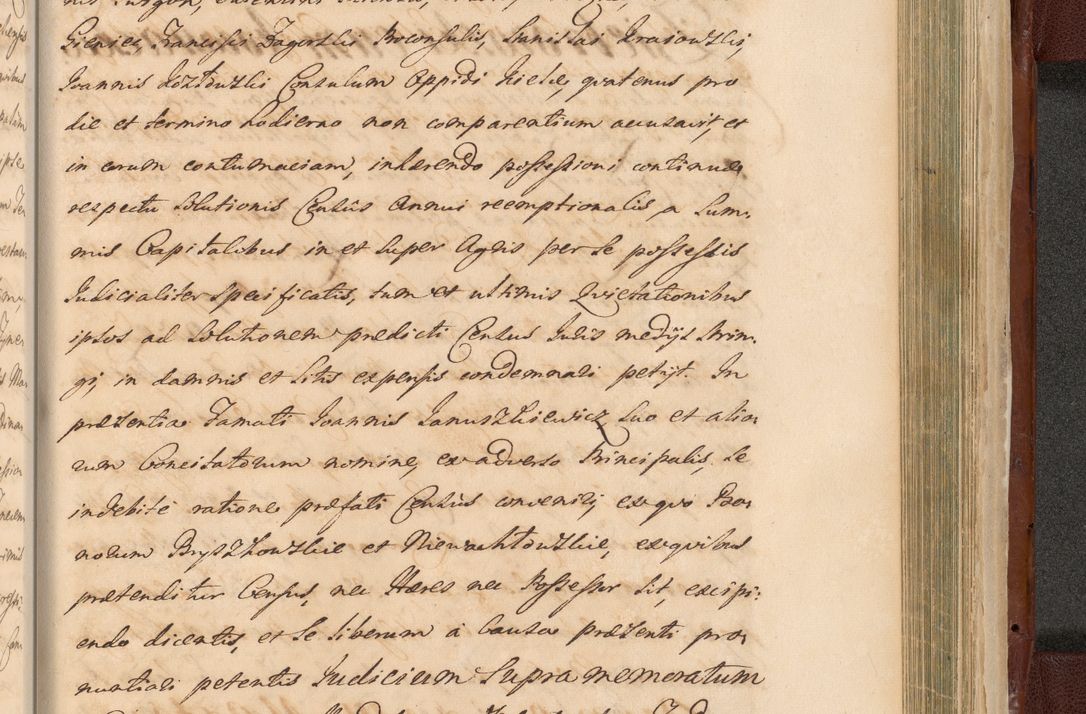 Gieniec, Francisci Zagorski Proconsulis, Stanislai Kraiowski,
Joannis Koztowski Consulum Oppidi Kielc, quatenus pro
die et termino hodierno non comparentium accusavit, et
in eorum contumaciam, inhærendo possessioni continuæ
respectu solutionis Censûs Annui reemptionalis a Sum¬
mis Capitalibus in et super Agris per se possessis
Judicialiter specificatis, tum et ultimis Quietationibus
ipsos ad solutionem prædicti Census Juris medijs strin¬
gi, in damnis et litis expensis condemnari petijt. In
præsentia Famati Joannis Januszkiewicz suo et alio¬
rum Concitatorum nomine, ex adverso Principalis se
indebitè ratione præfati Censûs conveniri, ex quo Bo¬
norum Bryszkowskie et Niewachtowskie, ex quibus
prætenditur Census, nec Hæres nec Possessor sit, excipi¬
endo dicentis, et se liberum à Causa præsenti pro¬
nuntiari petentis Judicium Supra memoratum